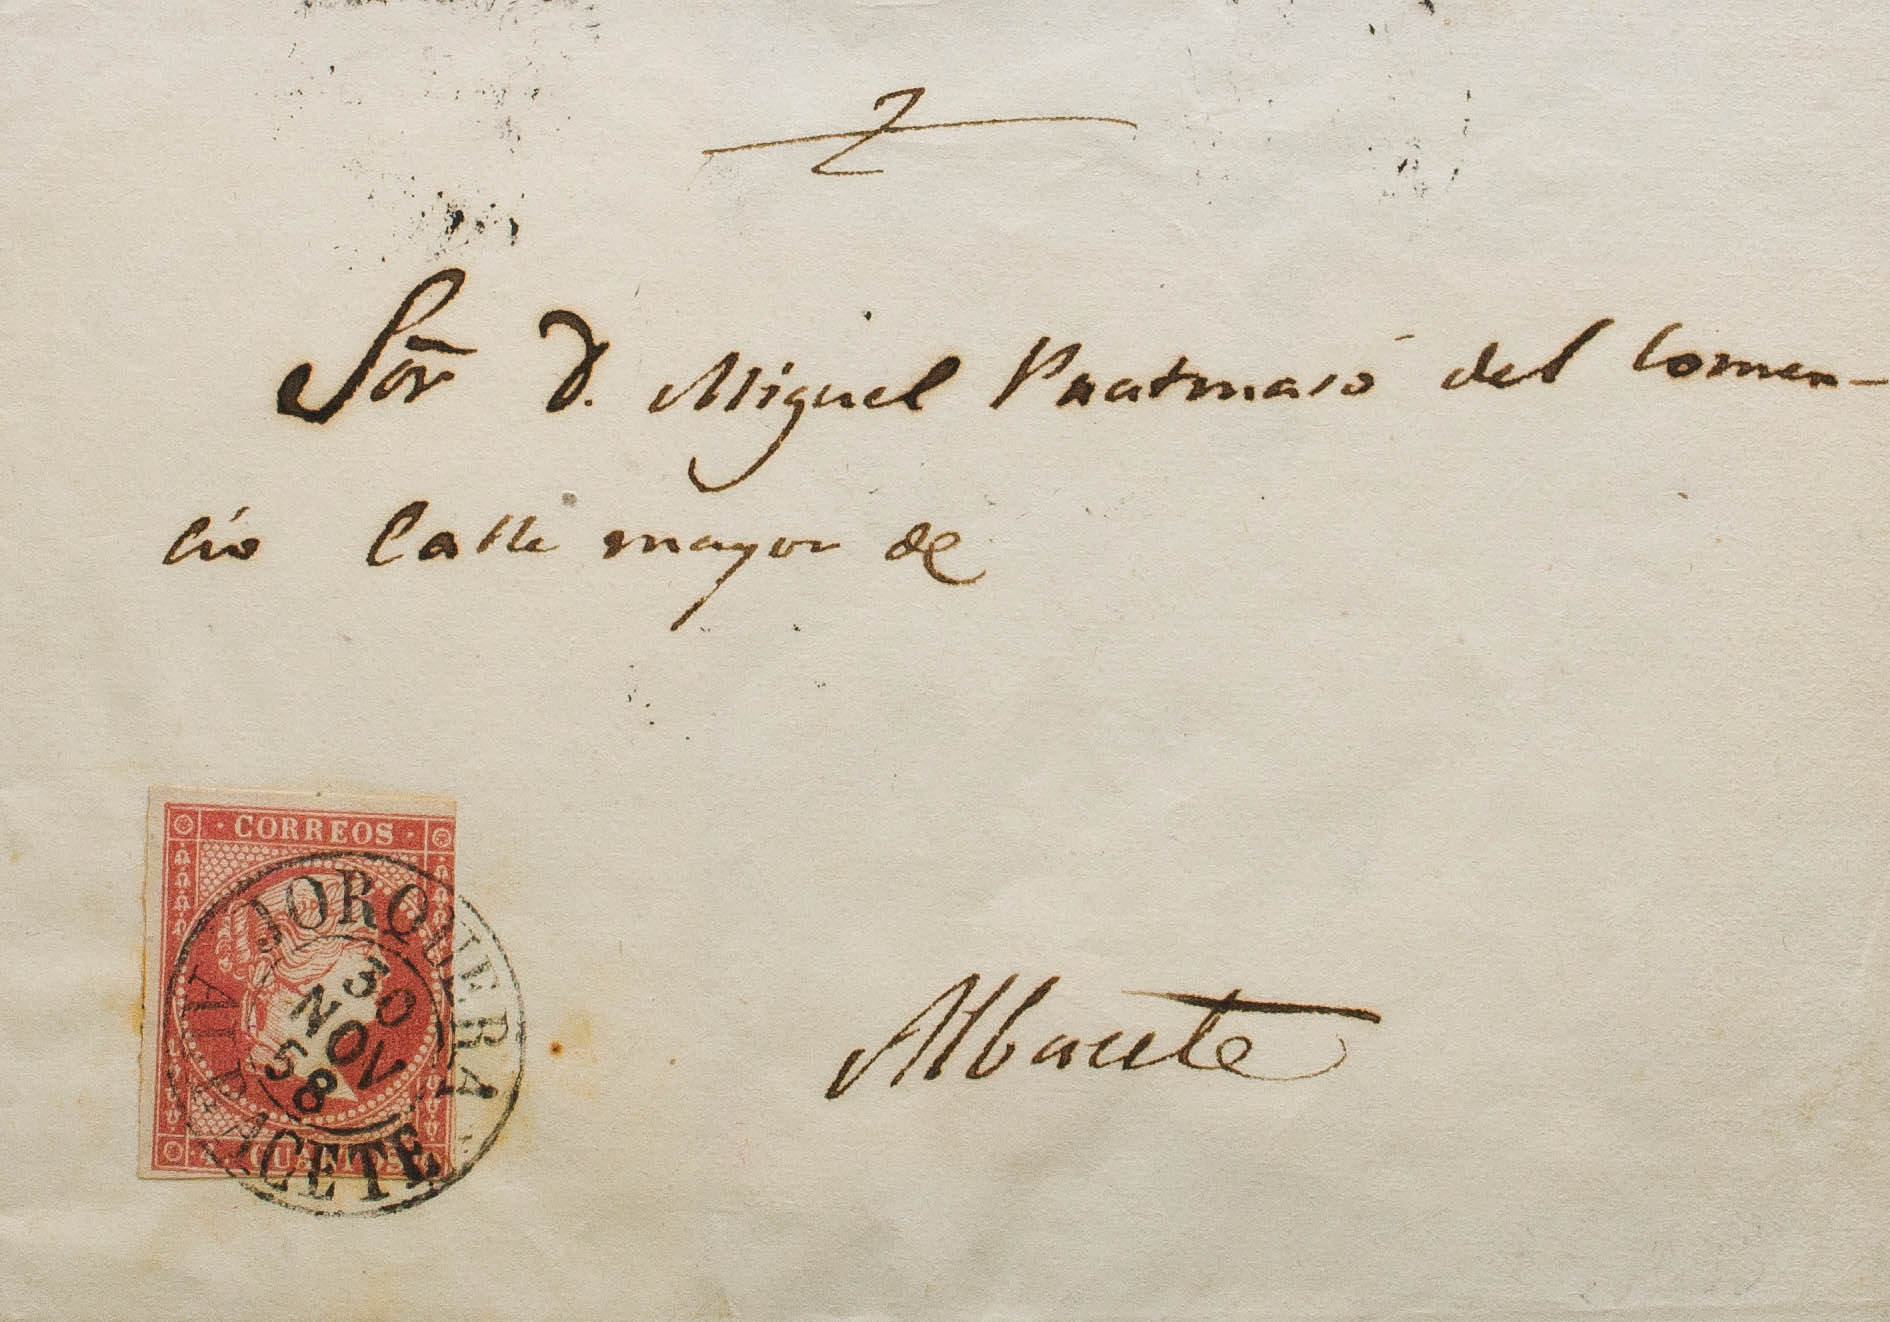 Sōr D. Miguel Pratmasó del Comer-
cio Calle mayor de
Albacete
CORREOS
JORQUERA
30
NOV
58
ALBACETE
4 CUARTOS